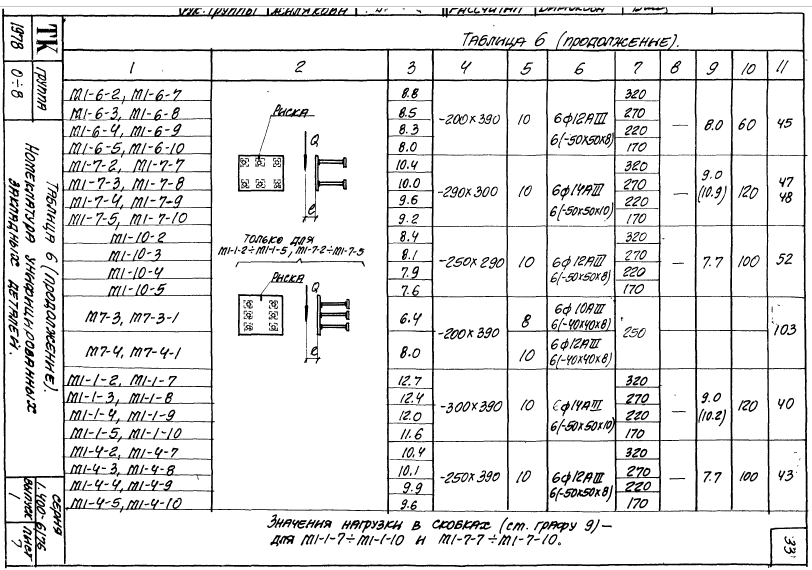 Рук. группы
Рассчитал
Таблица 6 (продолжение).
1 2 3 4 5 6 7 8 9 10 11
М1-6-2, М1-6-7 8.8 320
М1-6-3, М1-6-8 8.5 270
М1-6-4, М1-6-9 8.3 220
М1-6-5, М1-6-10 8.0 170
-200×390 10 6ф12АIII 6(-50×50×8) — 8.0 60 45
М1-7-2, М1-7-7 10.4 320
М1-7-3, М1-7-8 10.0 270
М1-7-4, М1-7-9 9.6 220
М1-7-5, М1-7-10 9.2 170
-290×300 10 6ф14АIII 6(-50×50×10) — 9.0 (10.9) 120 47 48
М1-10-2 8.4 320
М1-10-3 8.1 270
М1-10-4 7.9 220
М1-10-5 7.6 170
-250×290 10 6ф12АIII 6(-50×50×8) — 7.7 100 52
М7-3, М7-3-1 6.4 8 6ф10АIII 6(-40×40×8)
М7-4, М7-4-1 8.0 10 6ф12АIII 6(-40×40×8)
-200×390 250 103
М1-1-2, М1-1-7 12.7 320
М1-1-3, М1-1-8 12.4 270
М1-1-4, М1-1-9 12.0 220
М1-1-5, М1-1-10 11.6 170
-300×390 10 6ф14АIII 6(-50×50×10) — 9.0 (10.2) 120 40
М1-4-2, М1-4-7 10.4 320
М1-4-3, М1-4-8 10.1 270
М1-4-4, М1-4-9 9.9 220
М1-4-5, М1-4-10 9.6 170
-250×390 10 6ф12АIII 6(-50×50×8) — 7.7 100 43
Риска
Q
e
только для
М1-1-2÷М1-1-5, М1-7-2÷М1-7-5
Риска
Q
e
Значения нагрузки в скобках (ст. графу 9) —
для М1-1-7÷М1-1-10 и М1-7-7÷М1-7-10.
ТК
1978
Группа
0÷8
Таблица 6 (продолжение).
Номенклатура унифицированных
закладных деталей.
Серия
1.400-6/76
Выпуск 1
Лист 7
33